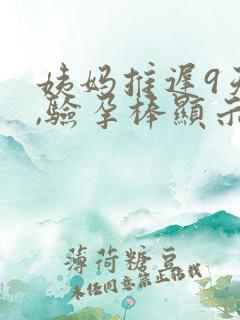 姨妈推迟9天
,驗孕棒顯示
薄荷糖豆
未经同意禁止转载